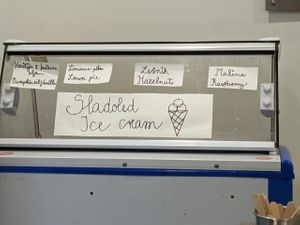 Vanilija z bučnim
oljem
Pumpkinoil/Vanilla
Limonina pita
Lemon pie
Lešnik
Hazelnut
Malina
Raspberry
Sladoled
Ice cream